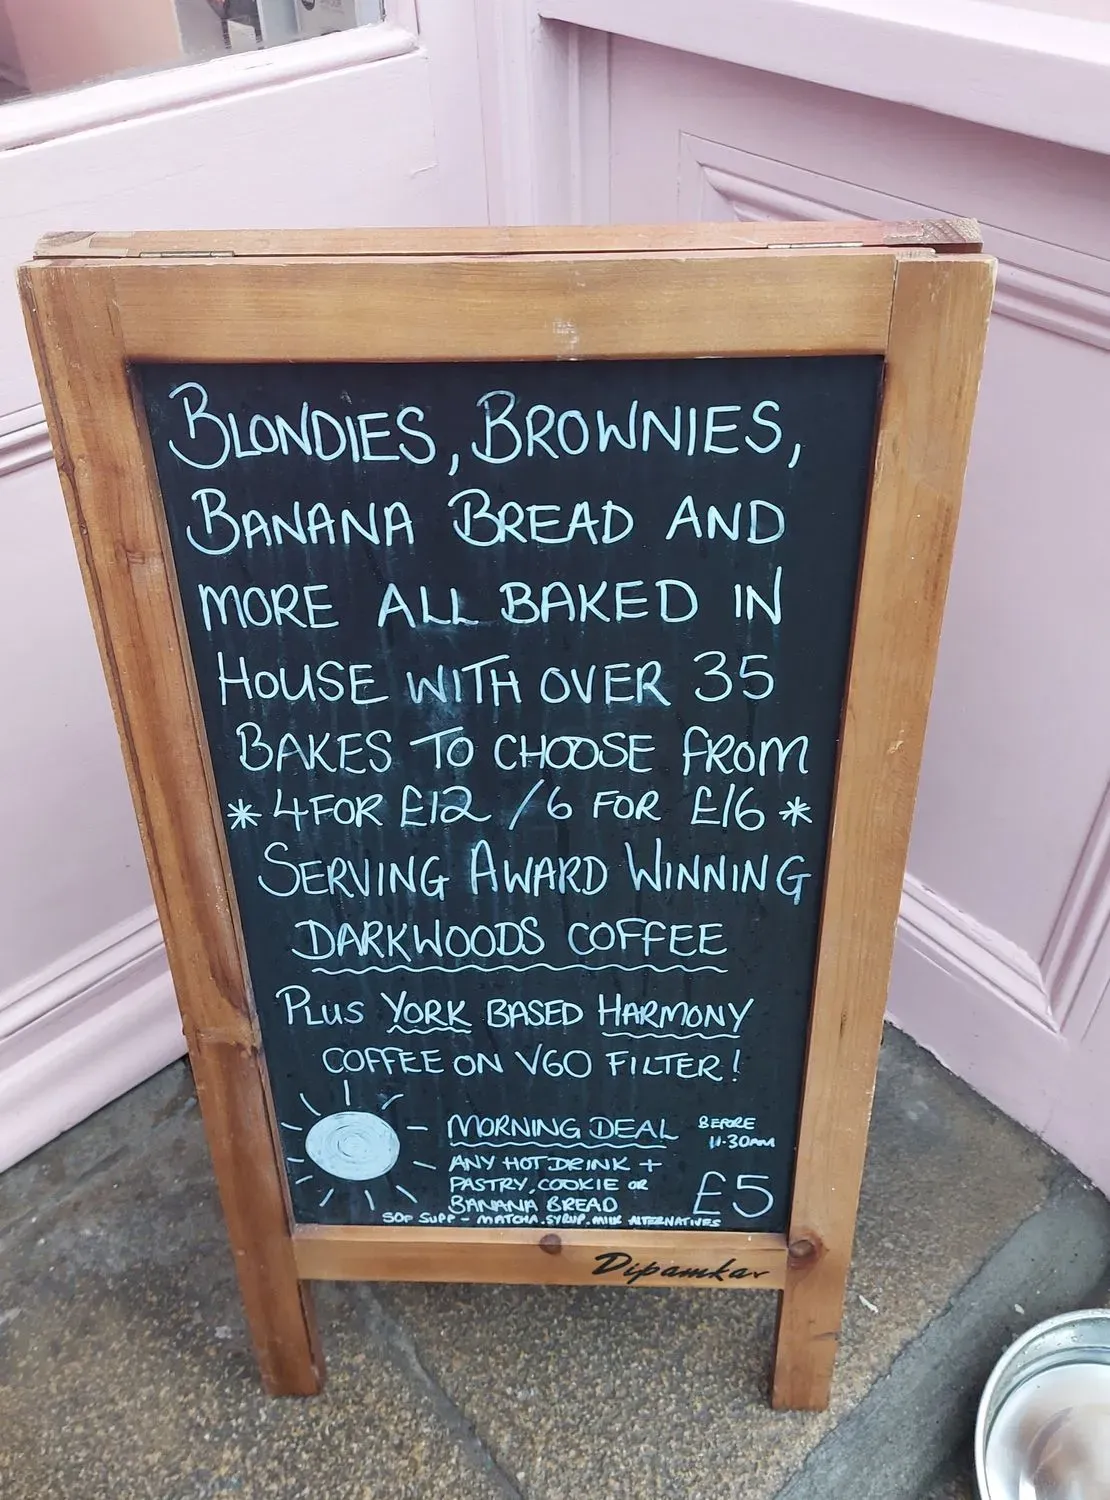 BLONDIES, BROWNIES,
BANANA BREAD AND
MORE ALL BAKED IN
HOUSE WITH OVER 35
BAKES TO CHOOSE FROM
* 4 FOR £12 / 6 FOR £16 *
SERVING AWARD WINNING
DARKWOODS COFFEE
PLUS YORK BASED HARMONY
COFFEE ON V60 FILTER!
MORNING DEAL BEFORE 11.30AM
ANY HOT DRINK +
PASTRY, COOKIE OR
BANANA BREAD £5
50P SUPP - MATCHA. SYRUP. MILK ALTERNATIVES
Dipamkar